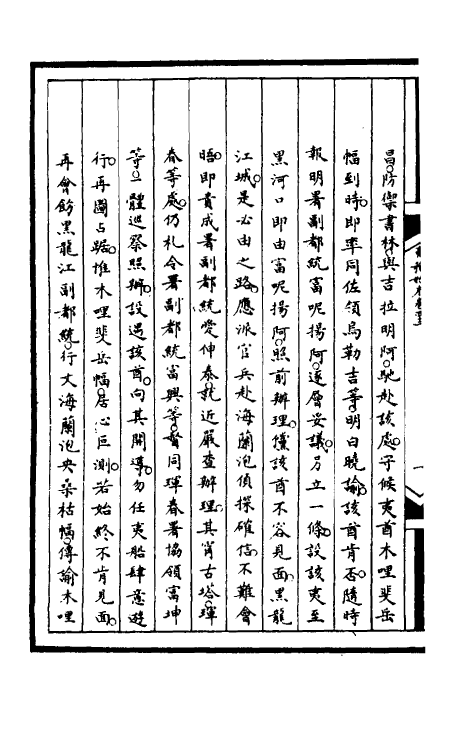 昌防禦書林與吉拉明阿馳赴該處守候夷酋木哩斐岳
幅到時即率同佐領烏勒吉等明白曉諭該酋肯否隨時
報明署副都統富呢揚阿逐層妥議另立一條設該夷至
黑河口即由富呢揚阿照前辦理儻該酋不容見面黑龍
江城是必由之路應派官兵赴海蘭泡偵探確信不難會
晤即責成署副都統愛伸泰就近嚴查辦理其甯古塔琿
春等處仍札令署副都統富興等督同琿春署協領富坤
等一體巡察照辦設遇該酋向其開導勿任夷船肆意遊
行再圖占踞惟木哩斐岳幅居心叵測若始終不肯見面
再會飭黑龍江副都統行文海蘭泡央桑枯幅傳諭木哩